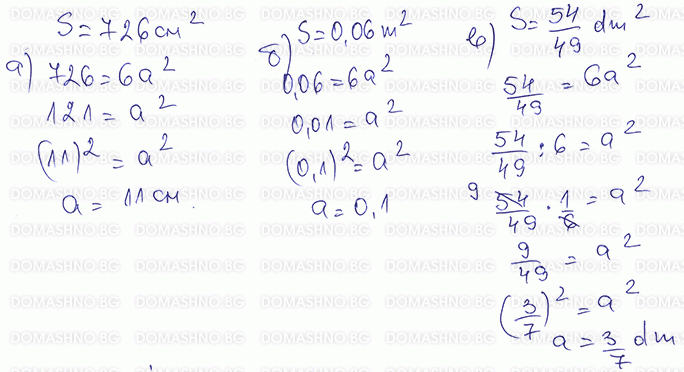 а) S = 726 см²
726 = 6a²
121 = a²
(11)² = a²
a = 11 см.
б) S = 0,06 m²
0,06 = 6a²
0,01 = a²
(0,1)² = a²
a = 0,1
в) S = 54/49 dm²
54/49 = 6a²
54/49 : 6 = a²
9 54/49 · 1/6 = a²
9/49 = a²
(3/7)² = a²
a = 3/7 dm
DOMASHNO.BG